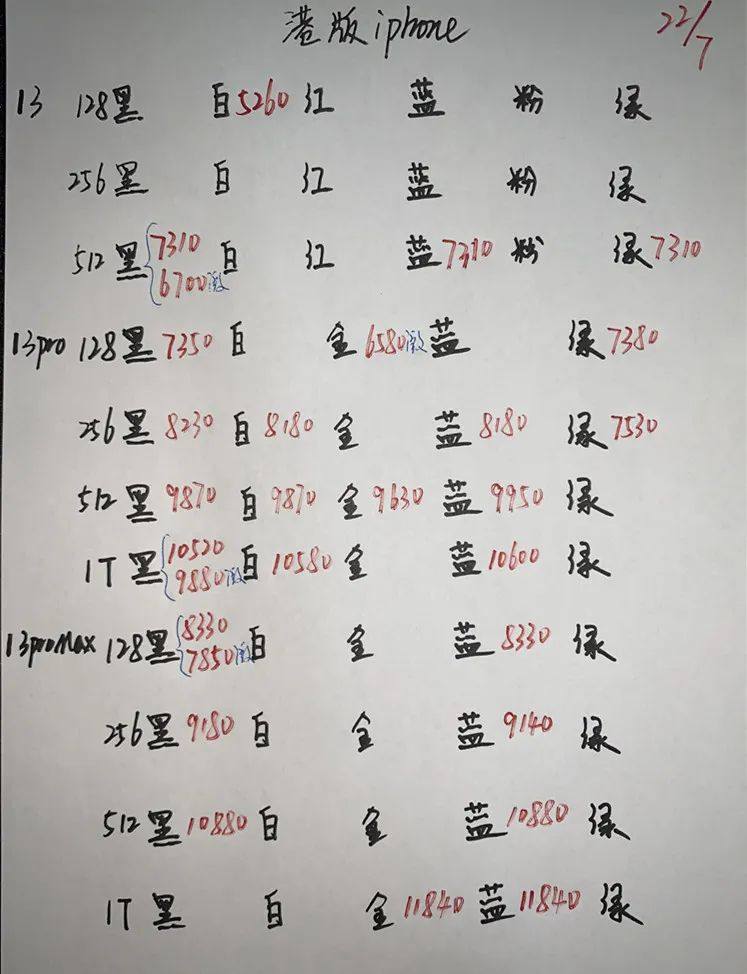 港版iphone 22/7
13 128黑 白5260 红 蓝 粉 绿
256黑 白 红 蓝 粉 绿
512黑{7310 白 红 蓝7310 粉 绿7310
6700激
13pro 128黑7350 白 金6580激 蓝 绿7380
256黑8230 白8180 金 蓝8180 绿7530
512黑9870 白9870 金9630 蓝9950 绿
1T黑{10520 白10580 金 蓝10600 绿
9880激
13proMax 128黑{8330 白 金 蓝8330 绿
7850激
256黑9180 白 金 蓝9140 绿
512黑10880 白 金 蓝10880 绿
1T黑 白 金11840 蓝11840 绿